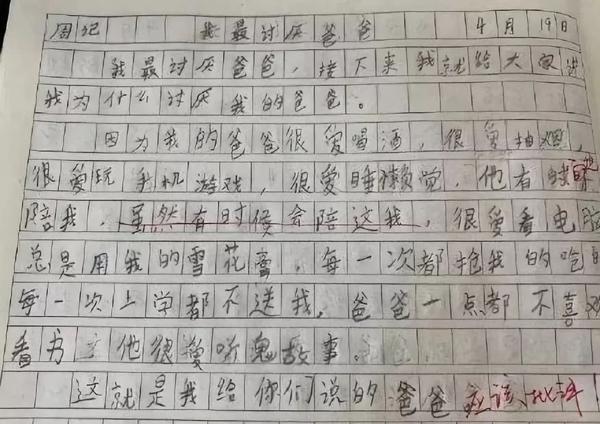 周记 我最讨厌爸爸 4月19日
我最讨厌爸爸,接下来我就给大家讲
我为什么讨厌我的爸爸。
因为我的爸爸很爱喝酒,很爱抽烟,
很爱玩手机游戏,很爱睡懒觉,他有时
陪我,虽然有时候会陪这我,很爱看电脑
总是用我的雪花膏,每一次都抢我的吃的
每一次上学都不送我,爸爸一点都不喜欢
看书,他很爱听鬼故事。
这就是我给你们说的爸爸 应该批评